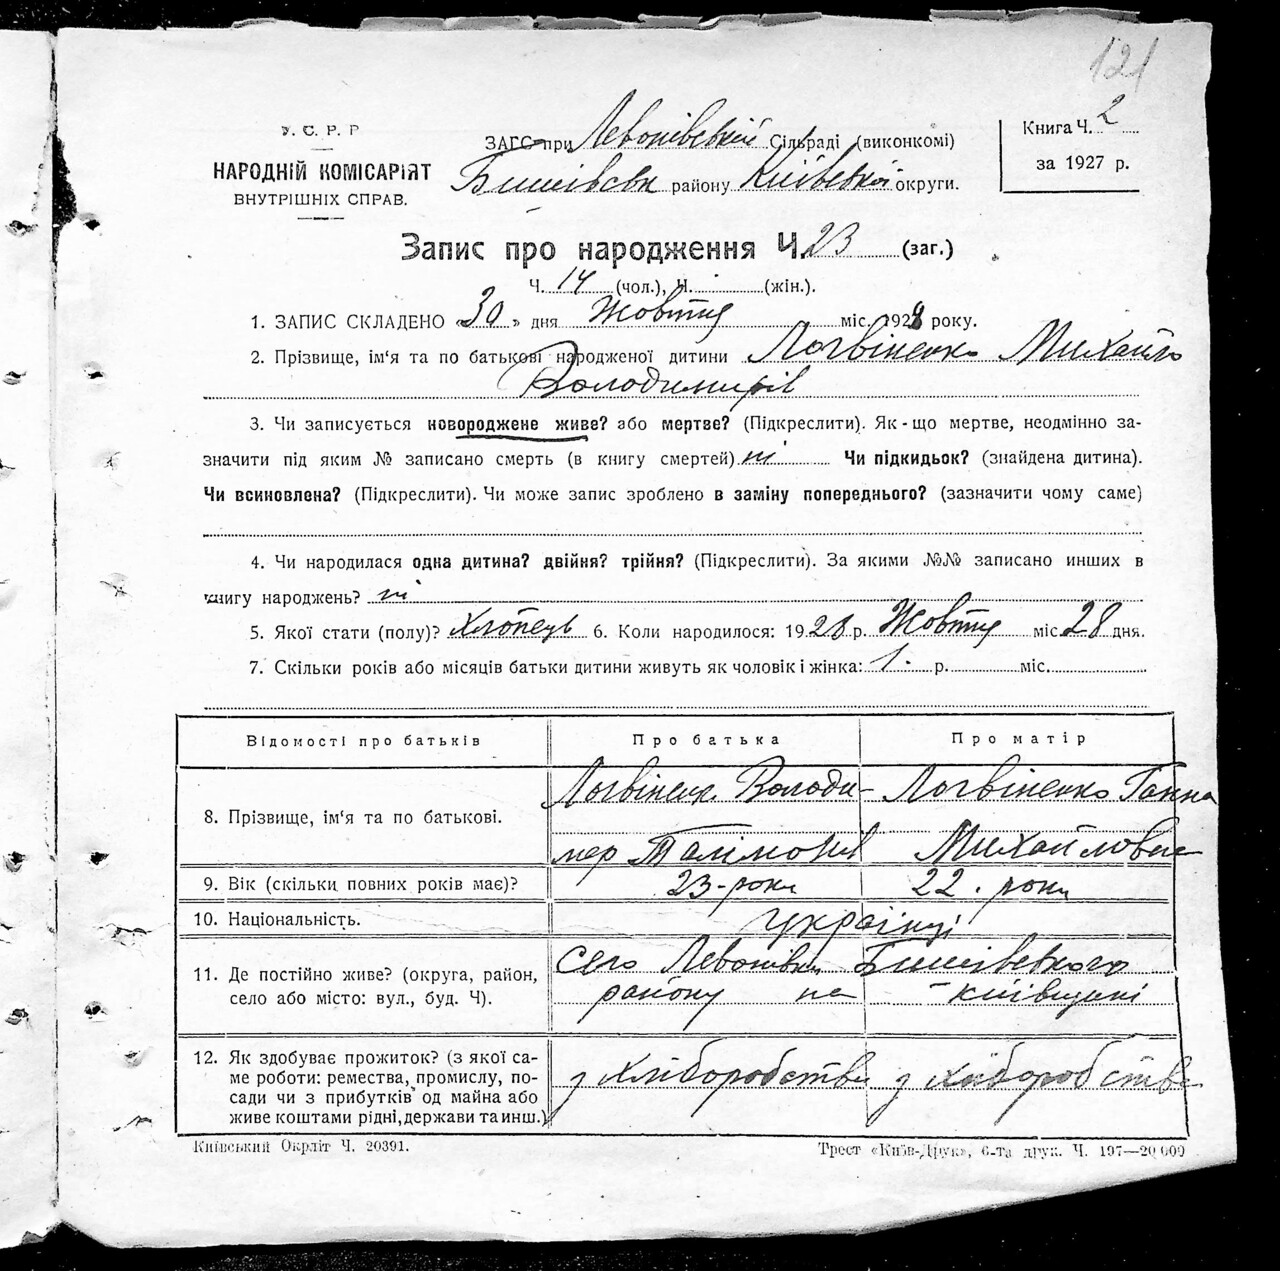 121
У. С. Р. Р
НАРОДНІЙ КОМІСАРІЯТ
ВНУТРІШНІХ СПРАВ.
ЗАГС при Левонівській Сільраді (виконкомі)
Бишівськ району Київської округи.
Книга Ч. 2
за 1927 р.
Запис про народження Ч. 23 (заг.)
Ч. 14 (чол.), Ч. (жін.).
1. ЗАПИС СКЛАДЕНО «30» дня Жовтня міс. 1928 року.
2. Прізвище, ім'я та по батькові народженої дитини Логвіненко Михайло
Володимирів
3. Чи записується новороджене живе? або мертве? (Підкреслити). Як-що мертве, неодмінно за-
значити під яким № записано смерть (в книгу смертей) ні Чи підкидьок? (знайдена дитина).
Чи всиновлена? (Підкреслити). Чи може запис зроблено в заміну попереднього? (зазначити чому саме)
4. Чи народилася одна дитина? двійня? трійня? (Підкреслити). За якими №№ записано инших в
книгу народжень? ні
5. Якої стати (полу)? Хлопець 6. Коли народилося: 1928 р. Жовтня міс 28 дня.
7. Скільки років або місяців батьки дитини живуть як чоловік і жінка: 1. р. міс.
Відомості про батьків Про батька Про матір
8. Прізвище, ім'я та по батькові. Логвіненк Володи- Логвіненко Ганна
мер Михайловна
9. Вік (скільки повних років має)? 23-роки 22. роки
10. Національність. українці
11. Де постійно живе? (округа, район, село Левонівки Бишівського
село або місто: вул., буд. Ч). району на Київщині
12. Як здобуває прожиток? (з якої са-
ме роботи: ремества, промислу, по- з хліборобства з хліборобства
сади чи з прибутків од майна або
живе коштами рідні, держави та инш.)
Київський Окрліт Ч. 20391. Трест «Київ-Друк», 6-та друк. Ч. 197—20 000